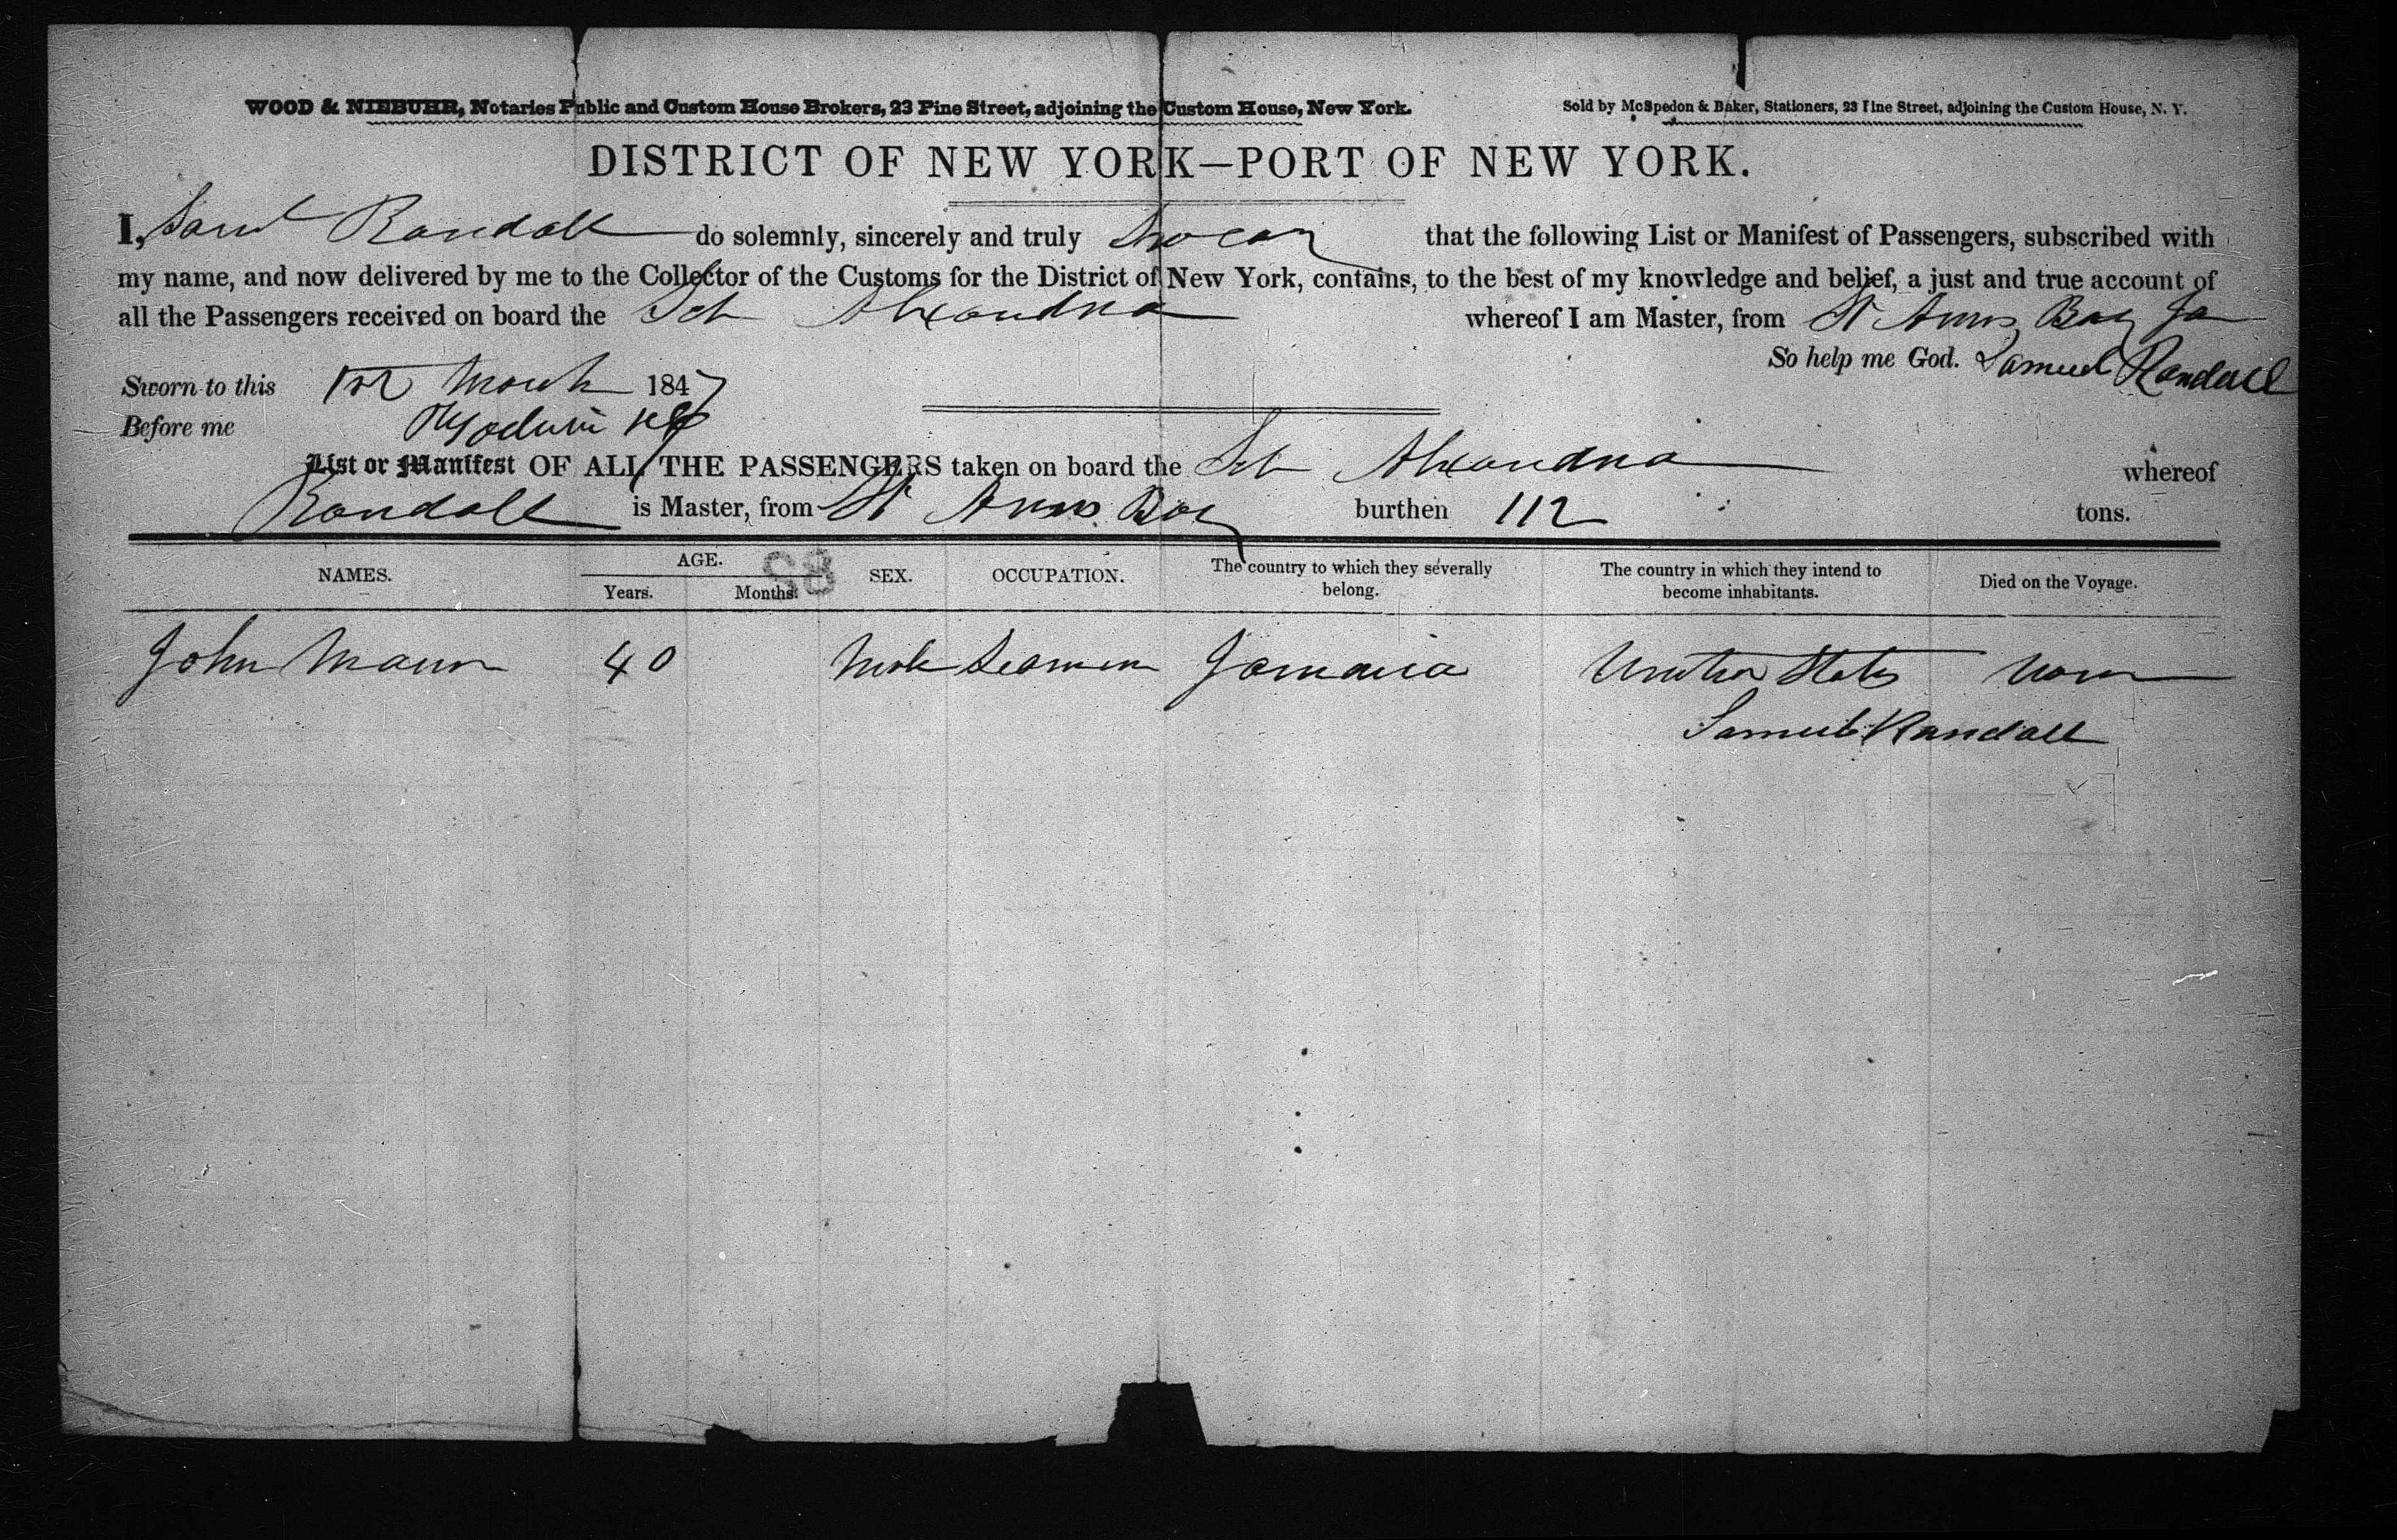 WOOD & NIEBUHR, Notaries Public and Custom House Brokers, 23 Pine Street, adjoining the Custom House, New York. Sold by McSpedon & Baker, Stationers, 23 Pine Street, adjoining the Custom House, N. Y.
DISTRICT OF NEW YORK—PORT OF NEW YORK.
I, Saml Randall do solemnly, sincerely and truly Swear that the following List or Manifest of Passengers, subscribed with
my name, and now delivered by me to the Collector of the Customs for the District of New York, contains, to the best of my knowledge and belief, a just and true account of
all the Passengers received on board the Sch Alexandria whereof I am Master, from St Anns Bay Ja
So help me God. Samuel Randall
Sworn to this 1st March 1847
Before me
List or Manifest OF ALL THE PASSENGERS taken on board the Sch Alexandria whereof
Randall is Master, from St Anns Bay burthen 112 tons.
NAMES. AGE. Years. Months. SEX. OCCUPATION. The country to which they severally belong. The country in which they intend to become inhabitants. Died on the Voyage.
82
John Mann 40 Male Seaman Jamaica United States None
Samuel Randall